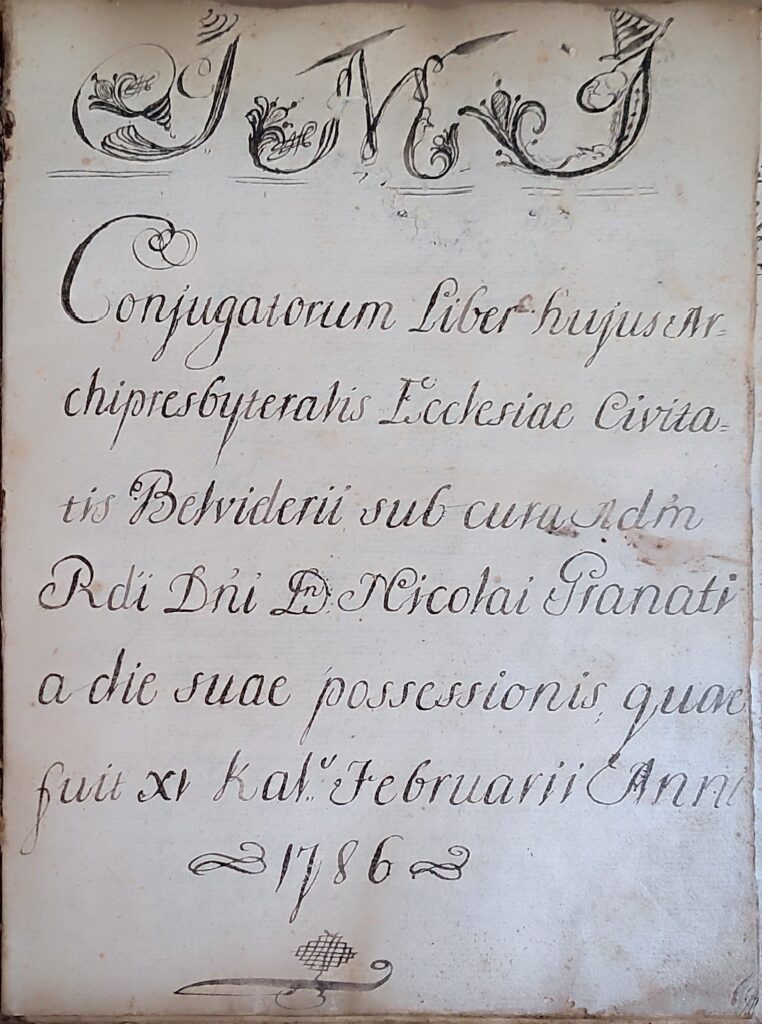 J M J
Conjugatorum Liber hujus Ar-
chipresbyteralis Ecclesiae Civita-
tis Belviderii sub cura Adm
Rdi Dni Dn Nicolai Granati
a die suae possessionis, quae
fuit XI Kal. Februarii Anni
1786